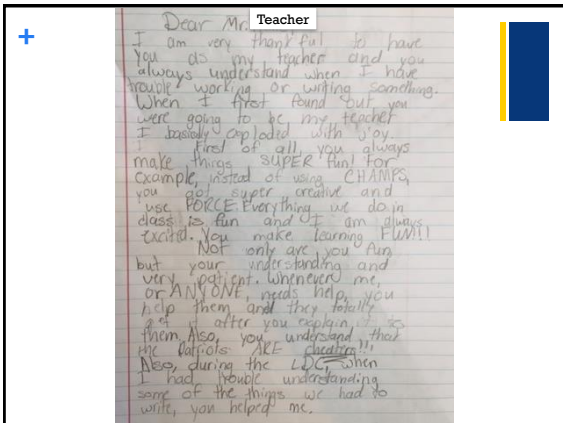 Dear Mr. Teacher
I am very thankful to have
you as my teacher and you
always understand when I have
trouble working or writing something.
When I first found out you
were going to be my teacher
I basically exploded with joy.
First of all, you always
make things SUPER fun! For
example, instead of using CHAMPS,
you got super creative and
use FORCE. Everything we do in
class is fun and I am always
excited. You make learning FUN!!!
Not only are you fun,
but your understanding and
very patient. Whenever me,
or ANYONE, needs help, you
help them and they totally
get it after you explain, to
them. Also, you understand that
the Patriots ARE cheaters!!!
Also, during the LDC, when
I had trouble understanding
some of the things we had to
write, you helped me.